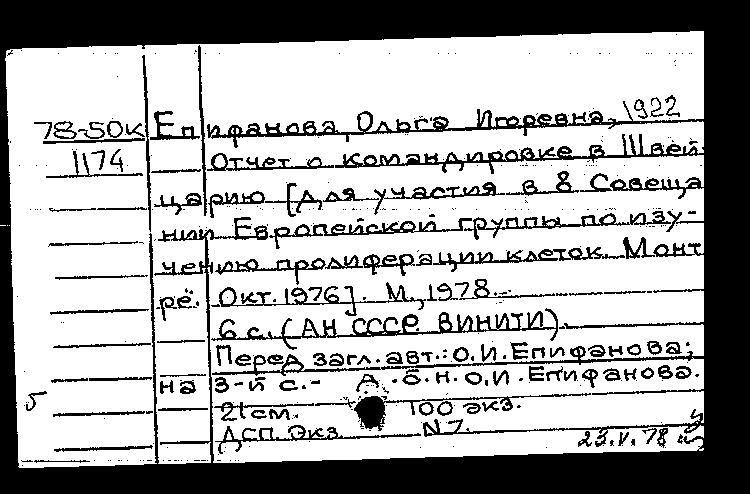 78-50к Епифанова, Ольга Игоревна, 1922
1174 Отчет о командировке в Швей-
царию [для участия в 8 Совеща
нии Европейской группы по изу-
чению пролиферации клеток. Монт
рё. Окт. 1976]. М., 1978.-
6 с. (АН СССР ВИНИТИ).
Перед загл. авт.: О.И. Епифанова;
на 3-й с.- д.б.н. О.И. Епифанова.
21 см. 100 экз.
ДСП. Экз. N 7.
23.V.78